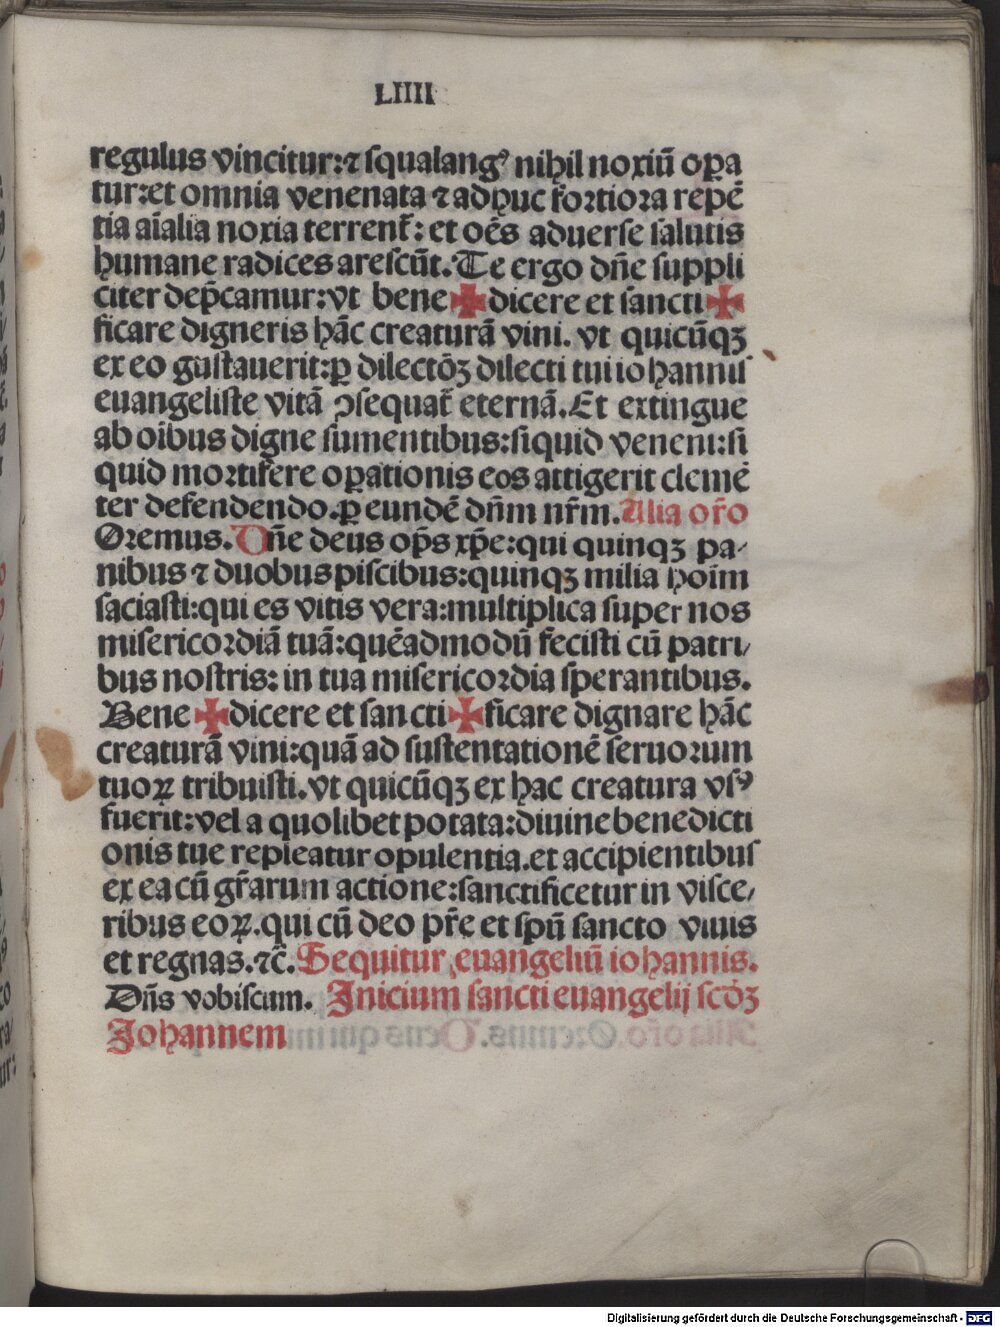 LIIII
regulus vincitur:⁊ squalangꝰ nihil noxiū oꝑa
tur:et omnia venenata ⁊ adhuc fortiora repē
tia aīalia noxia terrent̄: et oēs aduerse salutis
humane radices arescūt. Te ergo dn̄e suppli
citer dep̄camur: vt bene ✠ dicere et sancti ✠
ficare digneris hāc creaturā vini. vt quicūqꝫ
ex eo gustauerit:ꝑ dilectōꝫ dilecti tui iohannis
euangeliste vitā ꝯsequat̄ eternā. Et extingue
ab oībus digne sumentibus:siquid veneni:si
quid mortifere oꝑationis eos attigerit clemē
ter defendendo.ꝑ eundē dn̄m nr̄m. Alia or̄o
Oremus. Dn̄e deus op̄s xp̄e:qui quinqꝫ pa-
nibus ⁊ duobus piscibus:quinqꝫ milia hoīm
saciasti:qui es vitis vera:multiplica super nos
misericordiā tuā:quēadmodū fecisti cū patri/
bus nostris: in tua misericordia sperantibus.
Bene ✠ dicere et sancti ✠ ficare dignare hāc
creaturā vini:quā ad sustentationē seruorum
tuoꝝ tribuisti. vt quicūqꝫ ex hac creatura vsꝰ
fuerit:vel a quolibet potata:diuine benedicti
onis tue repleatur opulentia.et accipientibus
ex ea cū gr̄arum actione:sanctificetur in visce/
ribus eoꝝ.qui cū deo pr̄e et spū sancto viuis
et regnas.⁊c̄. Sequitur euangeliū iohannis.
Dn̄s vobiscum. Inicium sancti euangelij scōꝫ
Johannem
Digitalisierung gefördert durch die Deutsche Forschungsgemeinschaft - DFG